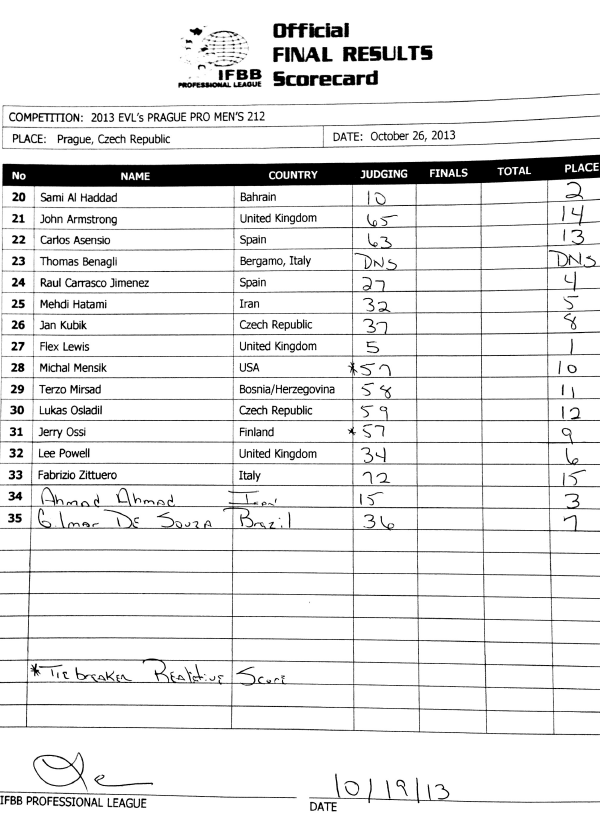 Official
FINAL RESULTS
Scorecard
IFBB
PROFESSIONAL LEAGUE
COMPETITION: 2013 EVL's PRAGUE PRO MEN'S 212
PLACE: Prague, Czech Republic DATE: October 26, 2013
No NAME COUNTRY JUDGING FINALS TOTAL PLACE
20 Sami Al Haddad Bahrain 10 2
21 John Armstrong United Kingdom 65 14
22 Carlos Asensio Spain 63 13
23 Thomas Benagli Bergamo, Italy DNS DNS
24 Raul Carrasco Jimenez Spain 27 4
25 Mehdi Hatami Iran 32 5
26 Jan Kubik Czech Republic 37 8
27 Flex Lewis United Kingdom 5 1
28 Michal Mensik USA *57 10
29 Terzo Mirsad Bosnia/Herzegovina 58 11
30 Lukas Osladil Czech Republic 59 12
31 Jerry Ossi Finland *57 9
32 Lee Powell United Kingdom 34 6
33 Fabrizio Zittuero Italy 72 15
34 Ahmad Ahmad 15 3
35 Gilmar De Souza Brazil 36 7
*Tiebreaker Relative Score
IFBB PROFESSIONAL LEAGUE
10/19/13
DATE